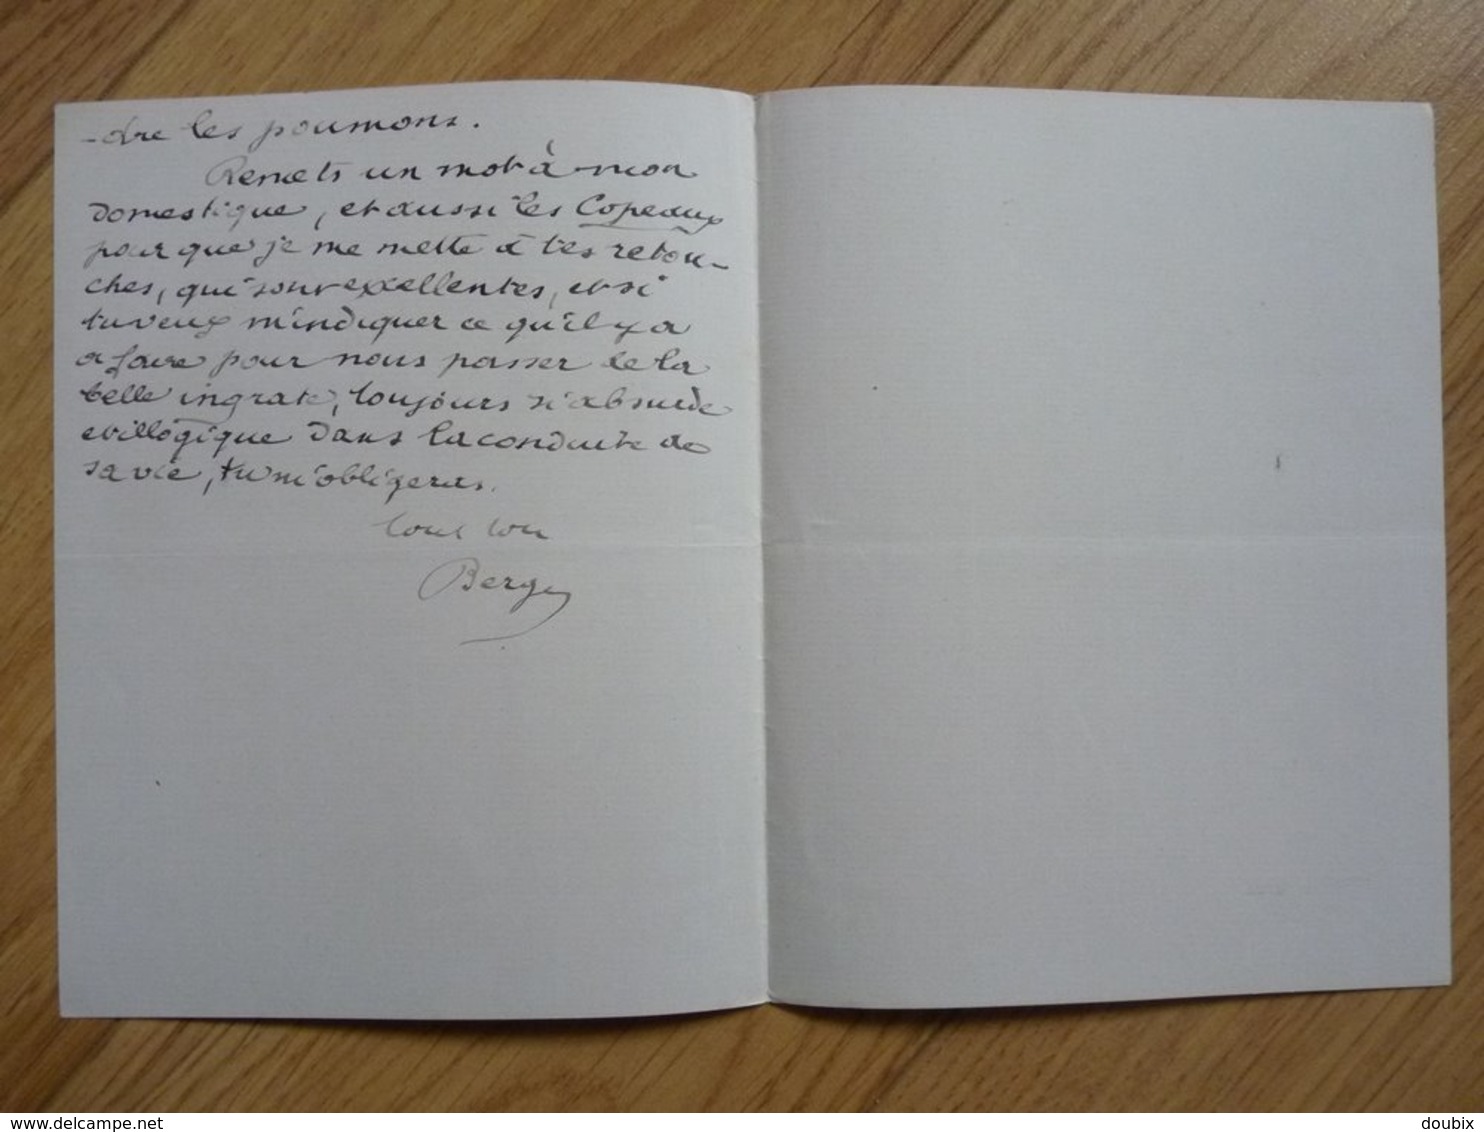 -dre les poumons.
Remets un mot à mon
domestique, et aussi les Copeaux
pour que je me mette à tes retou-
ches, qui sont excellentes, et si
tu veux m'indiquer ce qu'il y a
a faire pour nous passer de la
belle ingrate, toujours si absurde
et illogique dans la conduite de
sa vie, tu m'obligeras.
tout ton
Berg
© delcampe.net
doubix